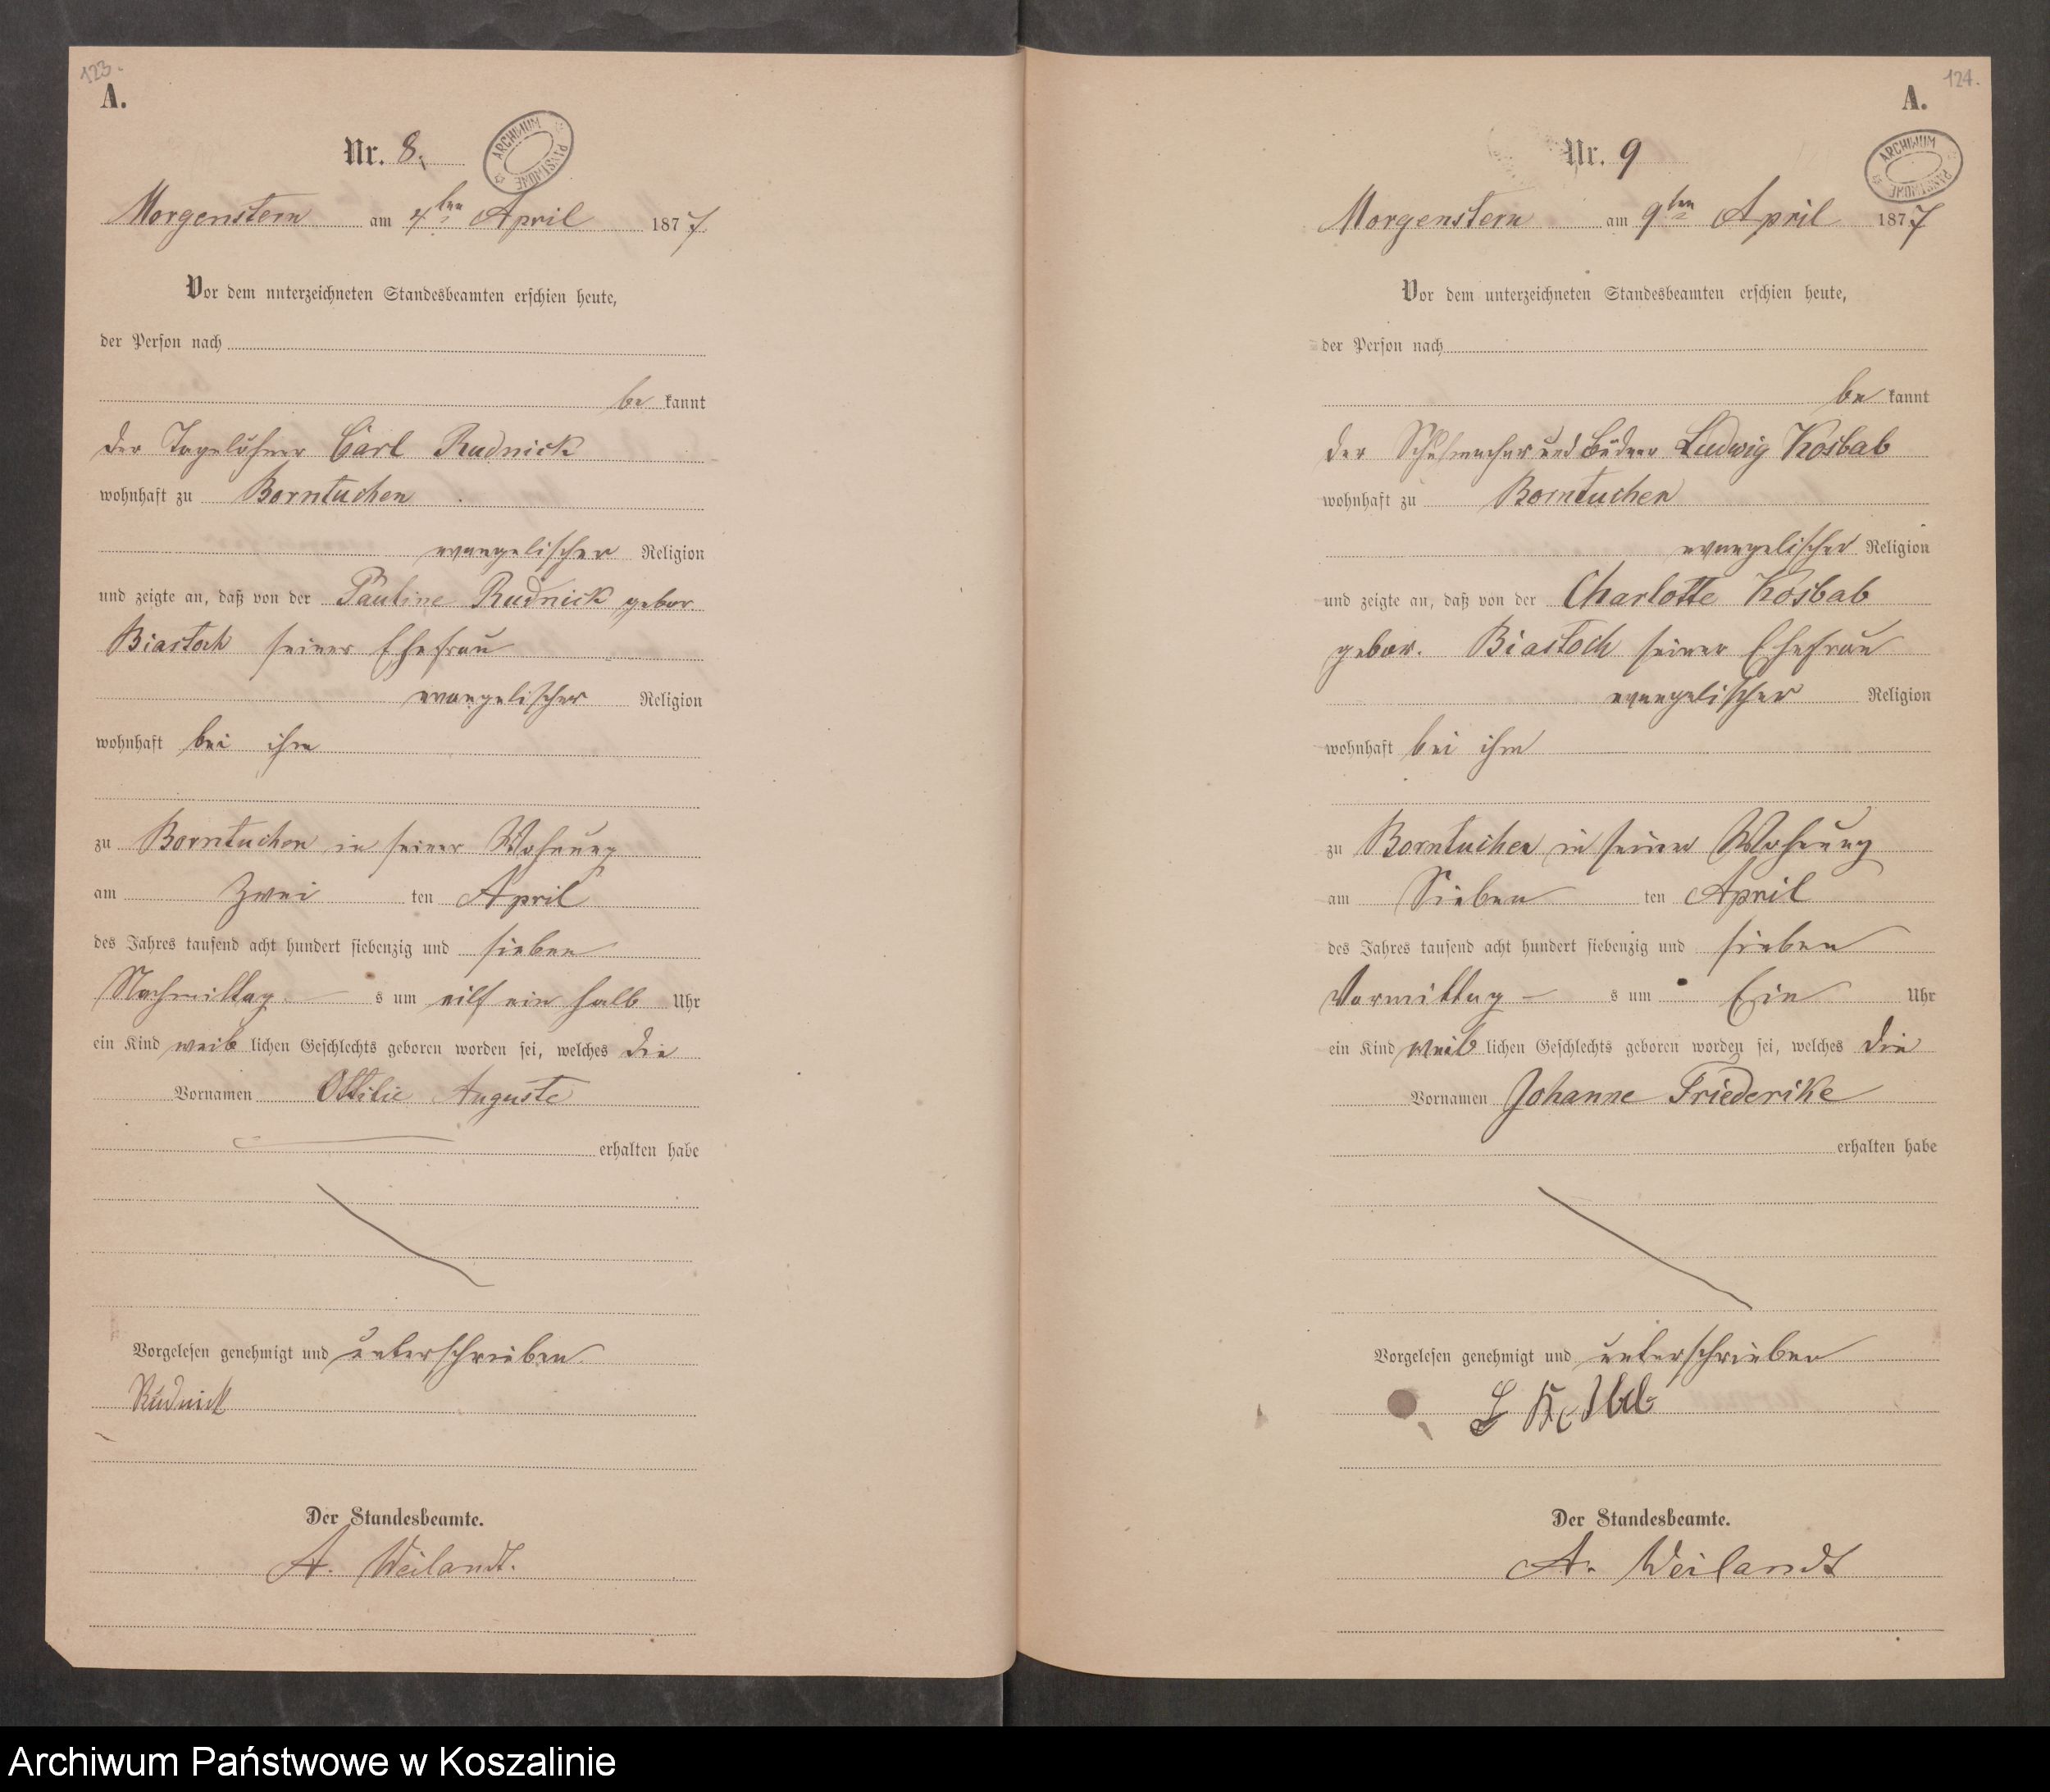 123.
A.
Nr. 8.
ARCHIWUM PAŃSTWOWE
Morgenstern am 4ten April 1877
Vor dem unterzeichneten Standesbeamten erschien heute,
der Person nach
be kannt
der Tagelöhner Carl Rudnick
wohnhaft zu Borntuchen
evangelischer Religion
und zeigte an, daß von der Pauline Rudnick gebor
Biastoch seiner Ehefrau
evangelischer Religion
wohnhaft bei ihm
zu Borntuchen in seiner Wohnung
am Zwei ten April
des Jahres tausend acht hundert siebenzig und sieben
Nachmittag s um eilf ein halb Uhr
ein Kind weib lichen Geschlechts geboren worden sei, welches die
Vornamen Ottilie Auguste
erhalten habe
Vorgelesen genehmigt und unterschrieben
Rudnick
Der Standesbeamte.
A. Weilandt.
124.
A.
Nr. 9
ARCHIWUM PAŃSTWOWE
Morgenstern am 9ten April 1877
Vor dem unterzeichneten Standesbeamten erschien heute,
der Person nach
be kannt
der Schuhmacher und Büdner Ludwig Kosbab
wohnhaft zu Borntuchen
evangelischer Religion
und zeigte an, daß von der Charlotte Kosbab
gebor. Biastoch seiner Ehefrau
evangelischer Religion
wohnhaft bei ihm
zu Borntuchen in seiner Wohnung
am Sieben ten April
des Jahres tausend acht hundert siebenzig und sieben
Vormittag s um Ein Uhr
ein Kind weib lichen Geschlechts geboren worden sei, welches die
Vornamen Johanne Friederike
erhalten habe
Vorgelesen genehmigt und unterschrieben
L Kosbab
Der Standesbeamte.
A. Weilandt
Archiwum Państwowe w Koszalinie